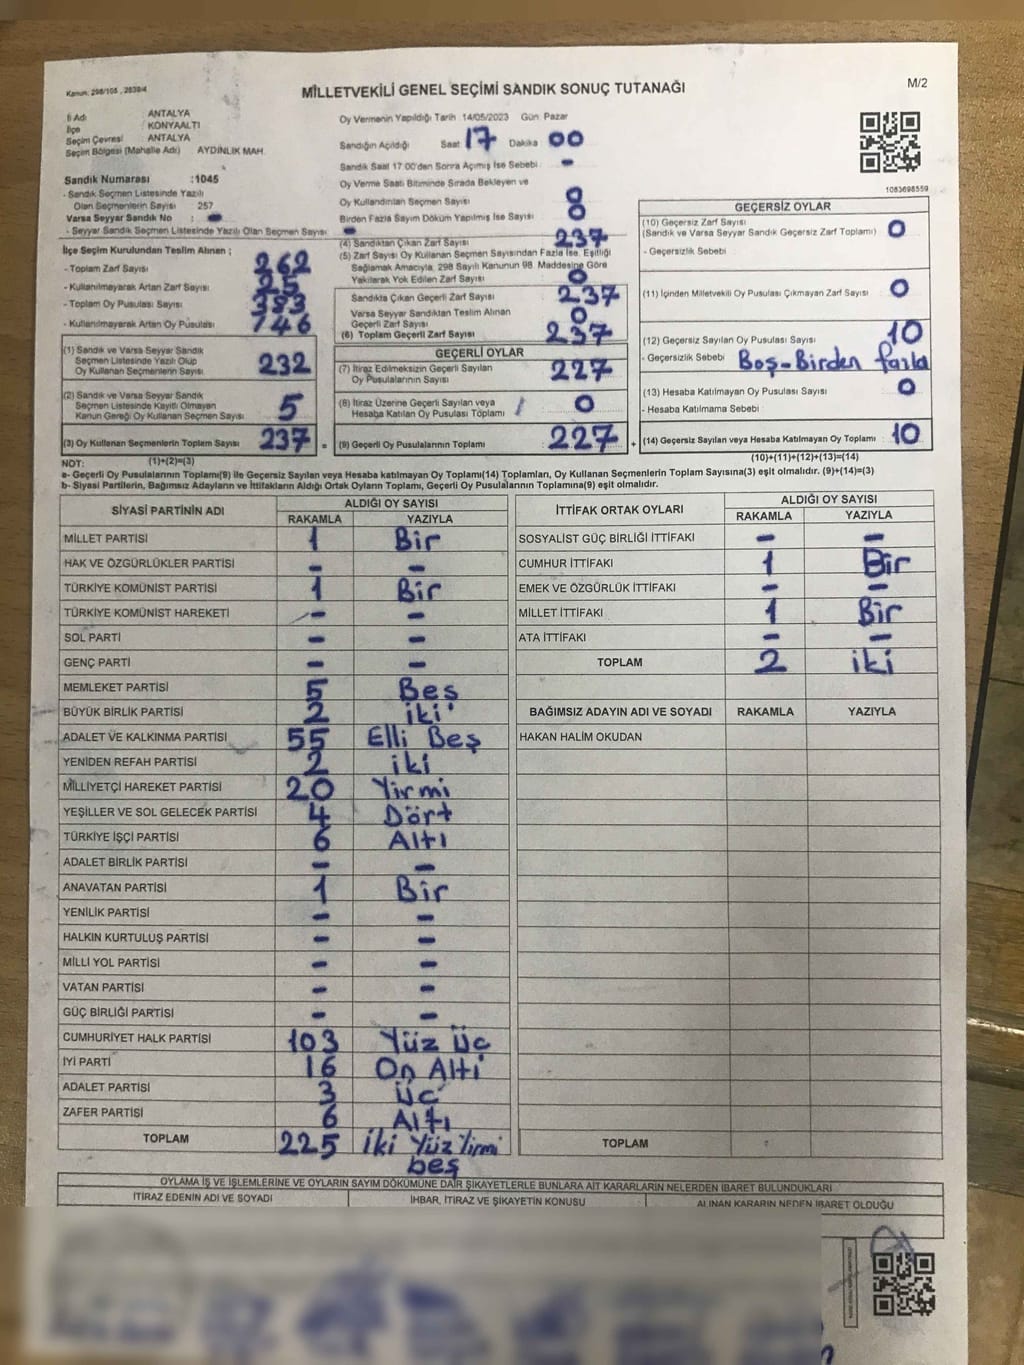 Kanun: 298/105 , 2839/4
MİLLETVEKİLİ GENEL SEÇİMİ SANDIK SONUÇ TUTANAĞI
M/2
İl Adı : ANTALYA
İlçe : KONYAALTI
Seçim Çevresi : ANTALYA
Seçim Bölgesi (Mahalle Adı) : AYDINLIK MAH.
Sandık Numarası :1045
- Sandık Seçmen Listesinde Yazılı
Olan Seçmenlerin Sayısı : 257
Varsa Seyyar Sandık No : -
- Seyyar Sandık Seçmen Listesinde Yazılı Olan Seçmen Sayısı : -
Oy Vermenin Yapıldığı Tarih 14/05/2023 Gün Pazar
Sandığın Açıldığı Saat 17 Dakika 00
Sandık Saat 17:00'den Sonra Açımış İse Sebebi : -
Oy Verme Saati Bitiminde Sırada Bekleyen ve
Oy Kullandırılan Seçmen Sayısı : 0
Birden Fazla Sayım Döküm Yapılmış İse Sayısı : 0
1083698559
İlçe Seçim Kurulundan Teslim Alınan ;
- Toplam Zarf Sayısı : 262
- Kullanılmayarak Artan Zarf Sayısı : 25
- Toplam Oy Pusulası Sayısı : 383
- Kullanılmayarak Artan Oy Pusulası : 146
(1) Sandık ve Varsa Seyyar Sandık
Seçmen Listesinde Yazılı Olup
Oy Kullanan Seçmenlerin Sayısı : 232
(2) Sandık ve Varsa Seyyar Sandık
Seçmen Listesinde Kayıtlı Olmayan
Kanun Gereği Oy Kullanan Seçmen Sayısı : 5
(3) Oy Kullanan Seçmenlerin Toplam Sayısı : 237 =
(1)+(2)=(3)
(4) Sandıktan Çıkan Zarf Sayısı : 237
(5) Zarf Sayısı Oy Kullanan Seçmen Sayısından Fazla İse, Eşitliği
Sağlamak Amacıyla, 298 Sayılı Kanunun 98. Maddesine Göre
Yakılarak Yok Edilen Zarf Sayısı : 0
Sandıkta Çıkan Geçerli Zarf Sayısı : 237
Varsa Seyyar Sandıktan Teslim Alınan
Geçerli Zarf Sayısı : 0
(6) Toplam Geçerli Zarf Sayısı : 237
GEÇERLİ OYLAR
(7) İtiraz Edilmeksizin Geçerli Sayılan
Oy Pusulalarının Sayısı : 227
(8) İtiraz Üzerine Geçerli Sayılan veya
Hesaba Katılan Oy Pusulası Toplamı : 0
(9) Geçerli Oy Pusulalarının Toplamı : 227 +
GEÇERSİZ OYLAR
(10) Geçersiz Zarf Sayısı
(Sandık ve Varsa Seyyar Sandık Geçersiz Zarf Toplamı) : 0
- Geçersizlik Sebebi :
(11) İçinden Milletvekili Oy Pusulası Çıkmayan Zarf Sayısı : 0
(12) Geçersiz Sayılan Oy Pusulası Sayısı : 10
- Geçersizlik Sebebi : Boş-Birden fazla
(13) Hesaba Katılmayan Oy Pusulası Sayısı : 0
- Hesaba Katılmama Sebebi :
(14) Geçersiz Sayılan veya Hesaba Katılmayan Oy Toplamı : 10
(10)+(11)+(12)+(13)=(14)
NOT:
a- Geçerli Oy Pusulalarının Toplamı(9) ile Geçersiz Sayılan veya Hesaba katılmayan Oy Toplamı(14) Toplamları, Oy Kullanan Seçmenlerin Toplam Sayısına(3) eşit olmalıdır. (9)+(14)=(3)
b- Siyasi Partilerin, Bağımsız Adayların ve İttifakların Aldığı Ortak Oyların Toplamı, Geçerli Oy Pusulalarının Toplamına(9) eşit olmalıdır.
SİYASİ PARTİNİN ADI
ALDIĞI OY SAYISI
RAKAMLA YAZIYLA
MİLLET PARTİSİ 1 Bir
HAK VE ÖZGÜRLÜKLER PARTİSİ - -
TÜRKİYE KOMÜNİST PARTİSİ 1 Bir
TÜRKİYE KOMÜNİST HAREKETİ - -
SOL PARTİ - -
GENÇ PARTİ - -
MEMLEKET PARTİSİ 5 Beş
BÜYÜK BİRLİK PARTİSİ 2 iki
ADALET VE KALKINMA PARTİSİ 55 Elli Beş
YENİDEN REFAH PARTİSİ 2 iki
MİLLİYETÇİ HAREKET PARTİSİ 20 Yirmi
YEŞİLLER VE SOL GELECEK PARTİSİ 4 Dört
TÜRKİYE İŞÇİ PARTİSİ 6 Altı
ADALET BİRLİK PARTİSİ - -
ANAVATAN PARTİSİ 1 Bir
YENİLİK PARTİSİ - -
HALKIN KURTULUŞ PARTİSİ - -
MİLLİ YOL PARTİSİ - -
VATAN PARTİSİ - -
GÜÇ BİRLİĞİ PARTİSİ - -
CUMHURİYET HALK PARTİSİ 103 Yüz Üç
İYİ PARTİ 16 On Altı
ADALET PARTİSİ 3 Üç
ZAFER PARTİSİ 6 Altı
TOPLAM 225 İki Yüz Yirmi
beş
İTTİFAK ORTAK OYLARI
ALDIĞI OY SAYISI
RAKAMLA YAZIYLA
SOSYALİST GÜÇ BİRLİĞİ İTTİFAKI - -
CUMHUR İTTİFAKI 1 Bir
EMEK VE ÖZGÜRLÜK İTTİFAKI - -
MİLLET İTTİFAKI 1 Bir
ATA İTTİFAKI - -
TOPLAM 2 iki
BAĞIMSIZ ADAYIN ADI VE SOYADI RAKAMLA YAZIYLA
HAKAN HALİM OKUDAN
TOPLAM
OYLAMA İŞ VE İŞLEMLERİNE VE OYLARIN SAYIM DÖKÜMÜNE DAİR ŞİKAYETLERLE BUNLARA AİT KARARLARIN NELERDEN İBARET BULUNDUKLARI
İTİRAZ EDENİN ADI VE SOYADI
İHBAR, İTİRAZ VE ŞİKAYETİN KONUSU
ALINAN KARARIN NEDEN İBARET OLDUĞU